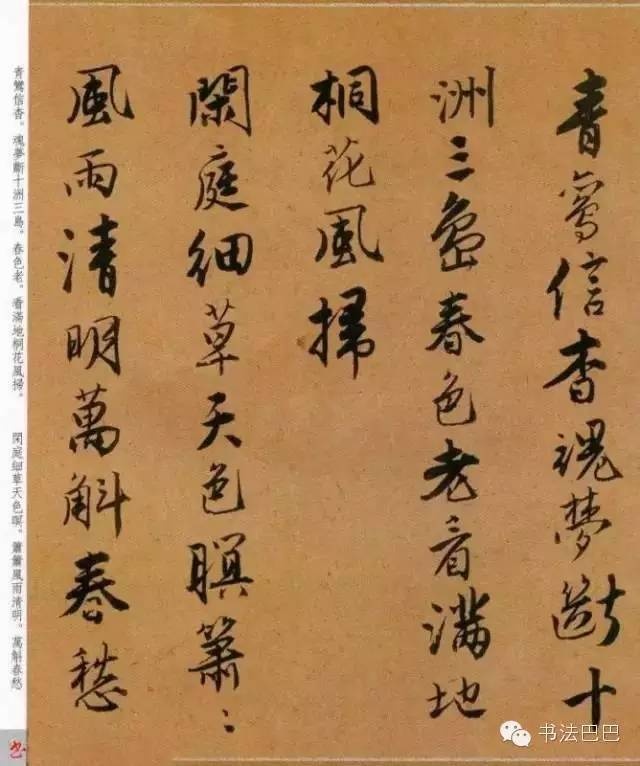 青鸞信杳魂夢斷十
洲三島春色老看滿地
桐花風掃
閑庭細草天色瞑簫〻
風雨清明萬斛春愁
青鸞信杳。魂夢斷十洲三島。春色老。看滿地桐花風掃。 閑庭細草天色瞑。簫簫風雨清明。萬斛春愁
书法巴巴